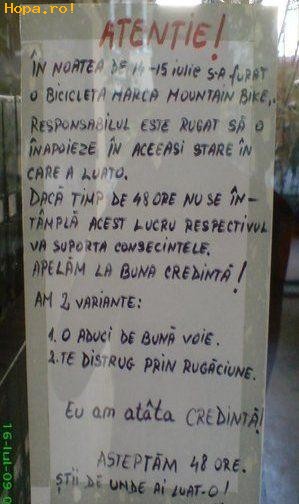 Hopa.ro!
ATENȚIE!
ÎN NOATEA DE 14-15 iulie S-A furAT
O BICICLETA MARCA MOUNTAIN BIKE,.
RESPONSABILUL ESTE RUGAT SĂ O
ÎNAPOIEZE ÎN ACEEASI STARE ÎN
CARE A LUATO.
DACĂ TIMP DE 48 ORE NU SE ÎN-
TÂMPLĂ ACEST LUCRU RESPECTIVUL
VA SUPORTA CONSECINTELE.
APELĂM LA BUNA CREDINTĂ!
AM 2 VARIANTE:
1. O ADUCI DE BUNĂ VOIE.
2. TE DISTRUG PRIN RUGĂCIUNE.
Eu am atâta CREDINTĂ!
ASTEPTĂM 48 ORE.
ȘTII DE UNDE AI LUAT-O!
16-Iul-09